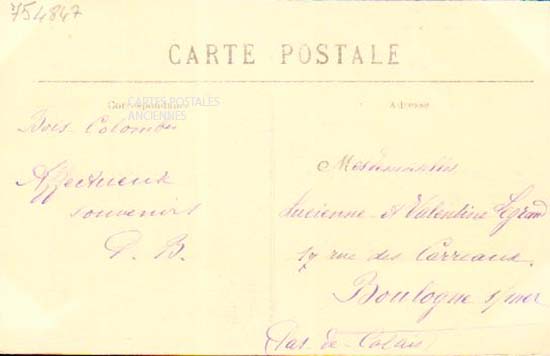 754847
CARTE POSTALE
Correspondance
CARTES POSTALES
ANCIENNES
Bois-Colombes
Affectueux
souvenirs
Adresse
Mesdemoiselles
Lucienne et Valentine Legrand
17 rue des Carreaux.
Boulogne s/mer
(Pas-de-Calais)